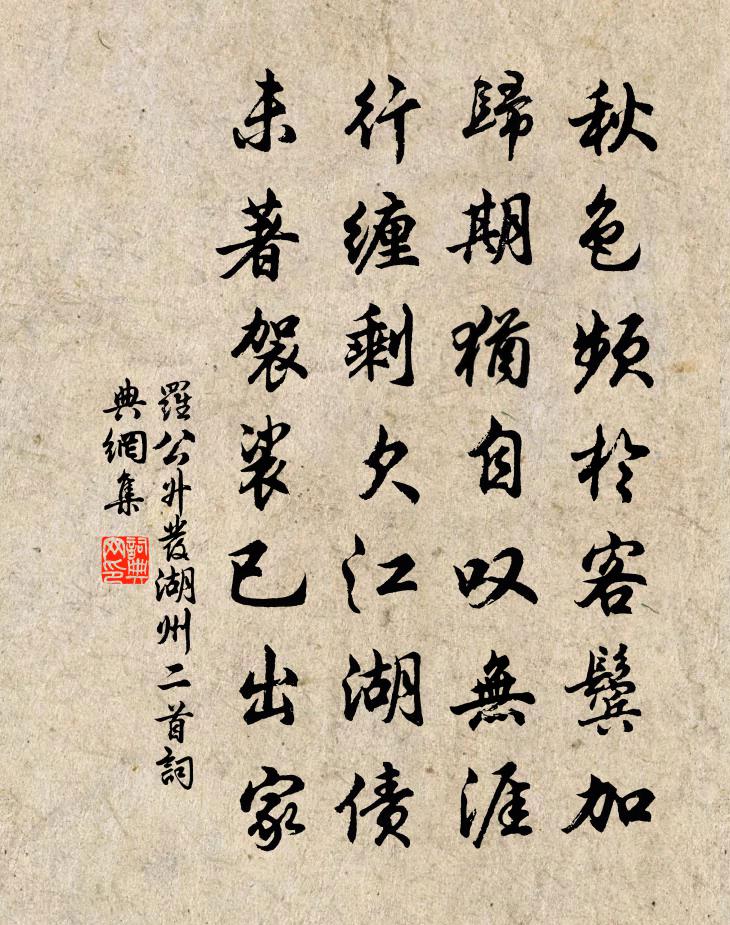 秋色頻於客鬢加
歸期猶自叹無涯
行纏剩欠江湖債
未著袈裟已出家
羅公升發湖州二首詞
典網集
詞典
网印